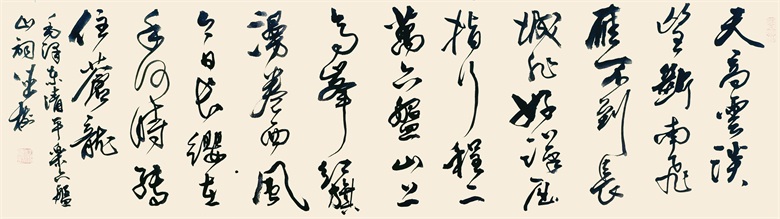 天高雲淡
望斷南飛
雁不到長
城非好漢屈
指行程二
萬六盤山上
高峰紅旗
漫卷西風
今日長纓在
手何時縛
住蒼龍
毛澤東清平樂六盤
山詞